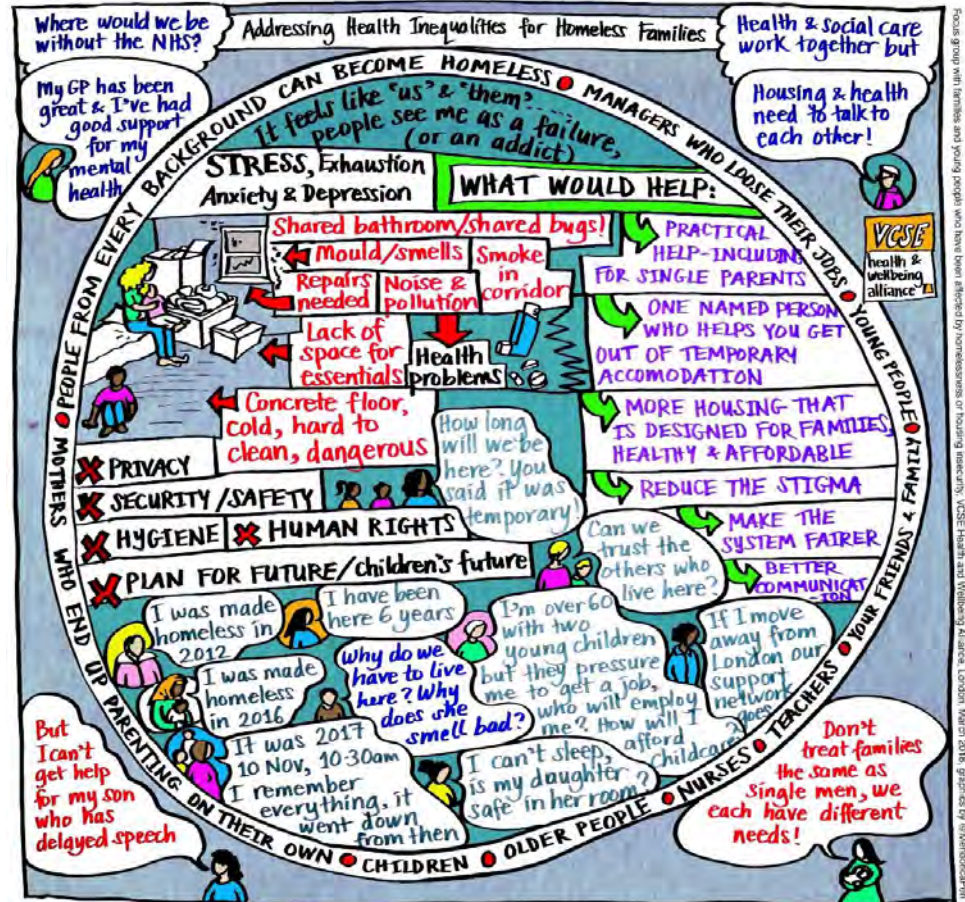 Addressing Health Inequalities for Homeless Families
Where would we be
without the NHS?
My GP has been
great & I've had
good support
for my
mental
health
Health & social care
work together but
Housing & health
need to talk to
each other!
VCSE
health &
wellbeing
alliance
PEOPLE FROM EVERY BACKGROUND CAN BECOME HOMELESS • MANAGERS WHO LOOSE THEIR JOBS • YOUNG PEOPLE • YOUR FRIENDS & FAMILY • TEACHERS • NURSES • OLDER PEOPLE • CHILDREN • MOTHERS WHO END UP PARENTING ON THEIR OWN •
It feels like "us" & "them"...
people see me as a failure,
(or an addict)
STRESS, Exhaustion
Anxiety & Depression
WHAT WOULD HELP:
Shared bathroom/shared bugs!
Mould/smells
Smoke
in
corridor
Repairs
needed
Noise &
pollution
Lack of
space for
essentials
Health
problems
Concrete floor,
cold, hard to
clean, dangerous
PRACTICAL
HELP-INCLUDING
FOR SINGLE PARENTS
ONE NAMED PERSON
WHO HELPS YOU GET
OUT OF TEMPORARY
ACCOMODATION
MORE HOUSING THAT
IS DESIGNED FOR FAMILIES,
HEALTHY & AFFORDABLE
REDUCE THE STIGMA
MAKE THE
SYSTEM FAIRER
BETTER
COMMUNICAT
-ION
X PRIVACY
X SECURITY/SAFETY
X HYGIENE
X HUMAN RIGHTS
X PLAN FOR FUTURE/children's future
How long
will we be
here? You
said it was
temporary!
Can we
trust the
others who
live here?
I was made
homeless in
2012
I have been
here 6 years
I was made
homeless
in 2016
Why do we
have to live
here? Why
does she
smell bad?
I'm over 60
with two
young children
but they pressure
me to get a job,
who will employ
me? How will I
afford
childcare?
If I move
away from
London our
support
network
goes
It was 2017
10 Nov, 10:30am
I remember
everything, it
went down
from then
I can't sleep,
is my daughter
safe in her room?
But
I can't
get help
for my son
who has
delayed speech
Don't
treat families
the same as
single men, we
each have different
needs!
Focus group with families and young people who have been affected by homelessness or housing insecurity. VCSE Health and Wellbeing Alliance, London, March 2018. graphics by